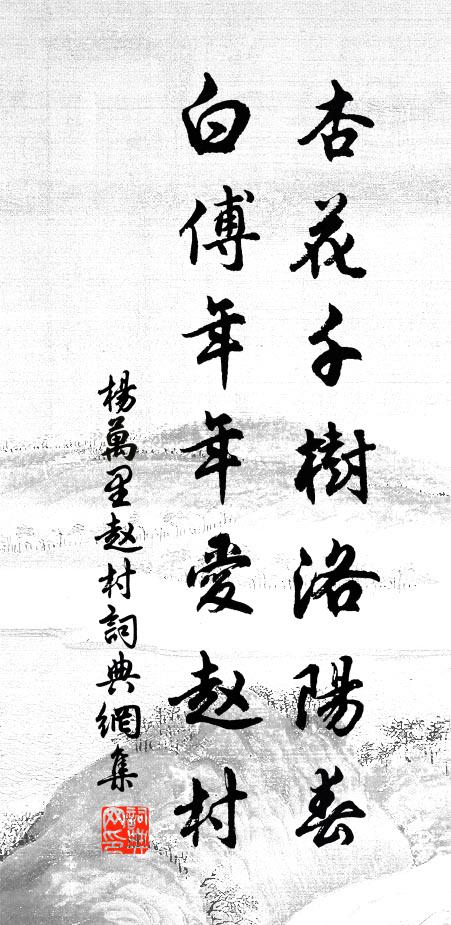 杏花千樹洛陽春
白傅年年愛赵村
楊萬里赵村詞典網集